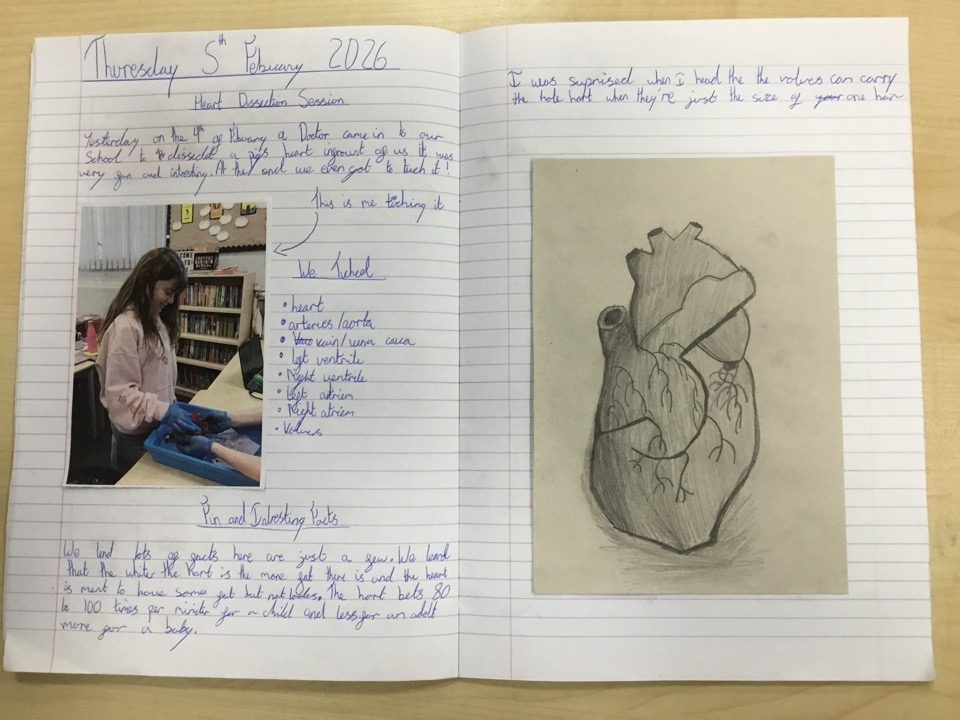 Thuresday 5th Febuary 2026
Heart Dissection Session
Yesterday on the 4th of Febuary a Doctor came in to our
School to dissedct a pigs heart infrount of us it was
very fun and intresting. At the end we even got to tuch it!
This is me tuching it
We Tuched
• heart
• arteries/aorta
• vain/vena cava
• left ventrile
• Right ventrile
• Left atriem
• Right atriem
• Valves
Fun and Intresting Facts
We lend lots of facts here are just a few. We lend
that the whiter the hart is the more fat there is and the heart
is ment to have some fat but not loades. The hart bets 80
to 100 times per miniter for a child and less for an adolt
more for a baby.
I was suprised when I head the the valves can carry
the hole hart when they're just the size of your one hair